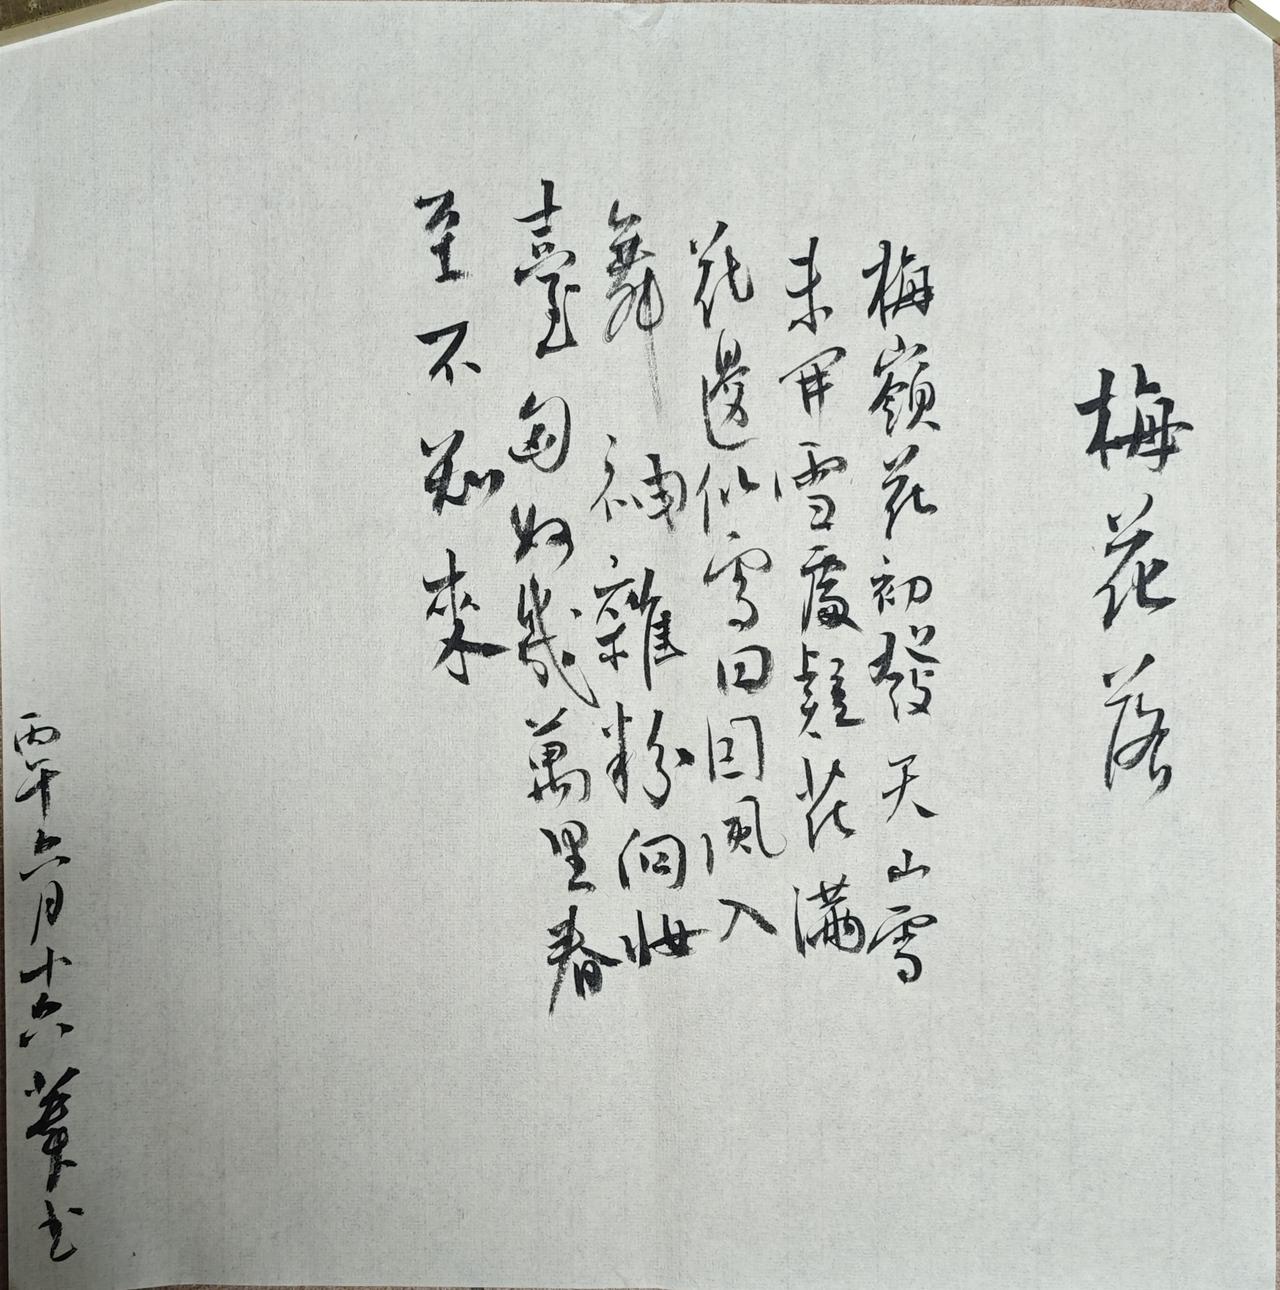 梅花落
梅嶺花初發天山雪
未開雪處疑花滿
花邊似雪回因風入
舞袖雜粉向妝
臺匈奴幾萬里春
至不知來
丙午六月十六 書